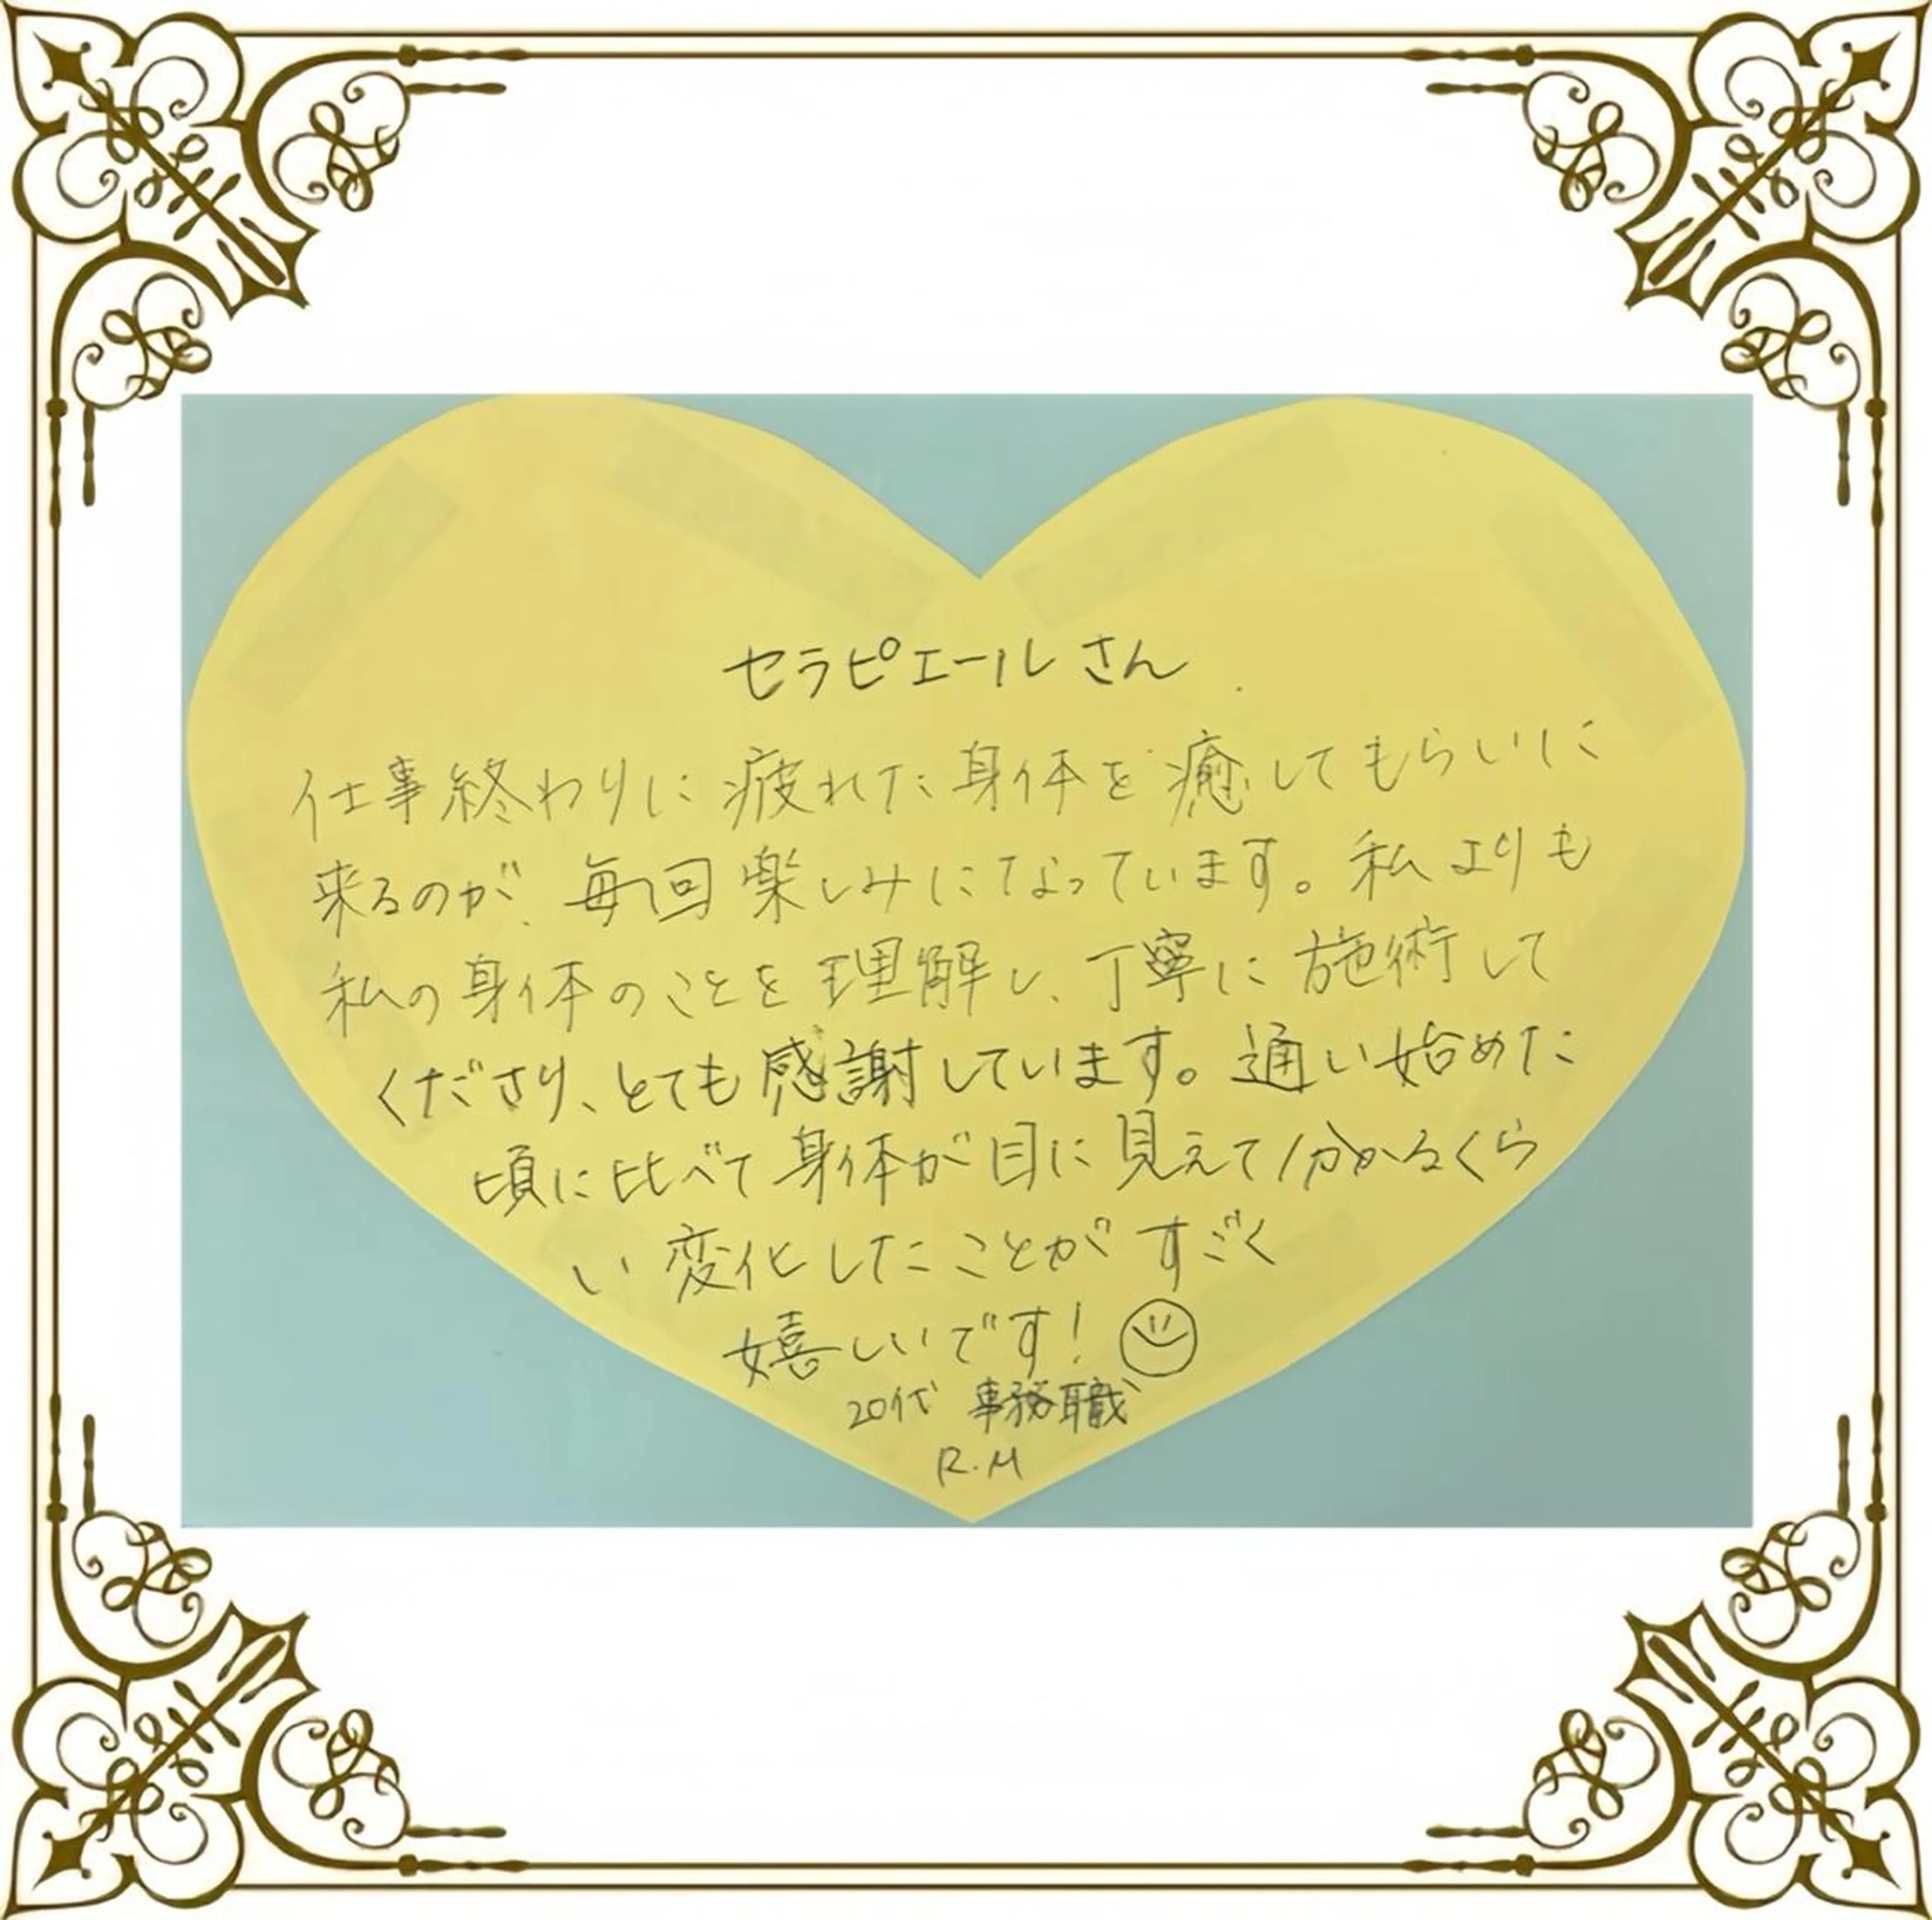 セラピエールさん
仕事終わりに疲れた身体を癒してもらいに
来るのが、毎回楽しみになっています。私よりも
私の身体のことを理解し、丁寧に施術して
くださり、とても感謝しています。通い始めた
頃に比べて身体が目に見えて分かるくら
い変化したことがすごく
嬉しいです!
20代 事務職
R.M